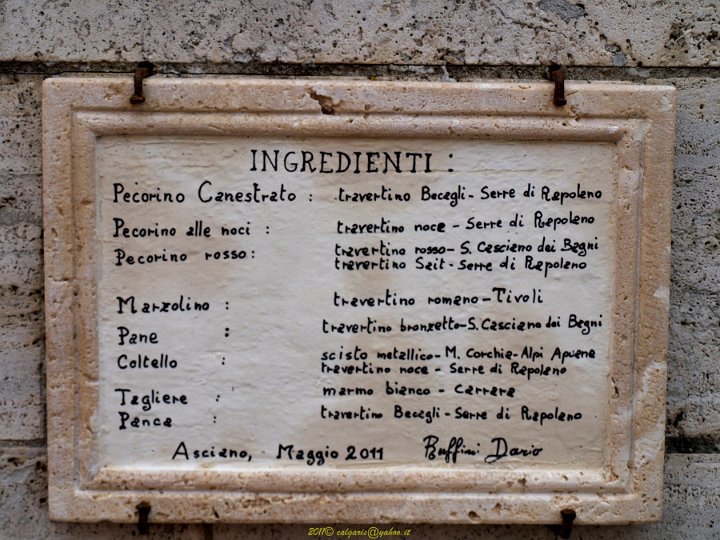 INGREDIENTI :
Pecorino Canestrato : travertino Becagli - Serre di Rapolano
Pecorino alle noci : travertino noce - Serre di Rapolano
Pecorino rosso : travertino rosso - S. Casciano dei Bagni
travertino Sait - Serre di Rapolano
Marzolino : travertino romano - Tivoli
Pane : travertino bronzetto - S. Casciano dei Bagni
Coltello : scisto metallico - M. Corchia - Alpi Apuane
travertino noce - Serre di Rapolano
Tagliere : marmo bianco - Carrara
Panca : travertino Becagli - Serre di Rapolano
Asciano, Maggio 2011 Ruffini Dario
2011© calgaris@yahoo.it